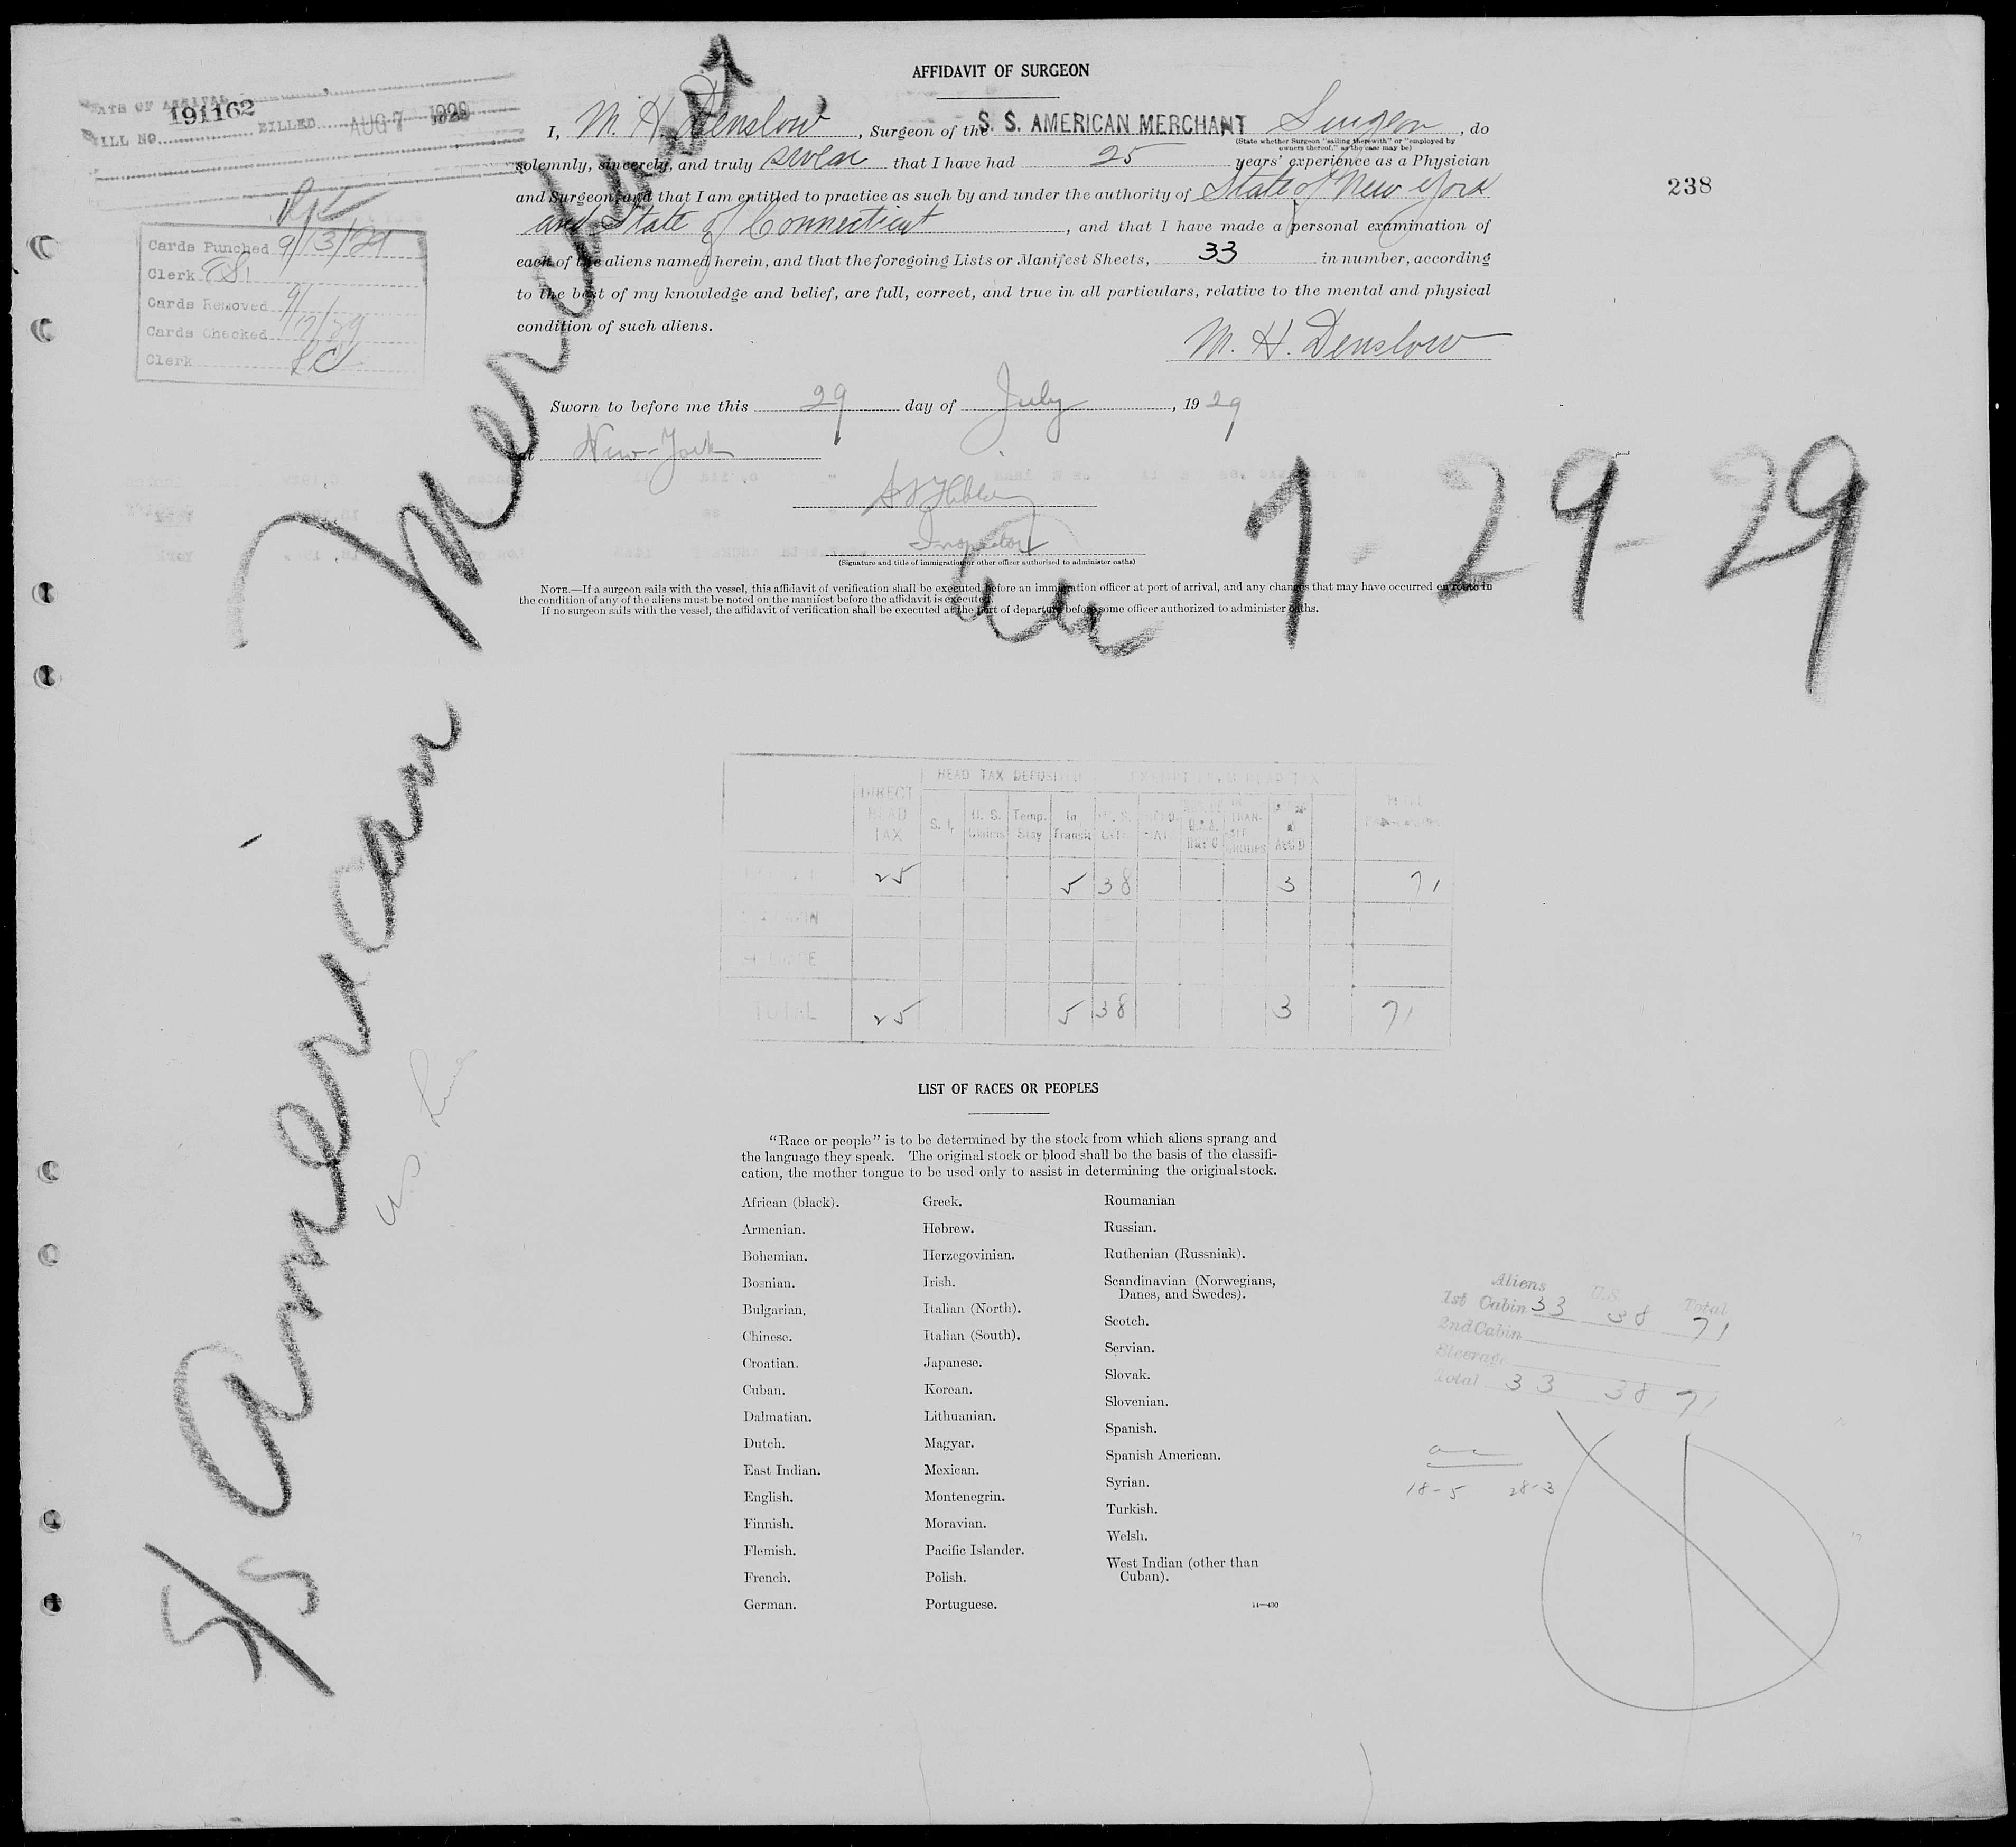 AFFIDAVIT OF SURGEON
DATE OF ARRIVAL
191162
BILL NO. BILLED AUG 7 1929
I, M. H. Denslow, Surgeon of the S. S. AMERICAN MERCHANT Surgeon, do
(State whether Surgeon "sailing therewith" or "employed by
owners thereof," as the case may be)
solemnly, sincerely, and truly swear that I have had 25 years' experience as a Physician
and Surgeon, and that I am entitled to practice as such by and under the authority of State of New York
and State of Connecticut, and that I have made a personal examination of
each of the aliens named herein, and that the foregoing Lists or Manifest Sheets, 33 in number, according
to the best of my knowledge and belief, are full, correct, and true in all particulars, relative to the mental and physical
condition of such aliens.
M. H. Denslow
238
Cards Punched 9/13/29
Clerk
Cards Removed 9/
Cards Checked 17/29
Clerk
Sworn to before me this 29 day of July, 1929
at New-York
Inspector
(Signature and title of immigration or other officer authorized to administer oaths)
NOTE.—If a surgeon sails with the vessel, this affidavit of verification shall be executed before an immigration officer at port of arrival, and any changes that may have occurred en route in
the condition of any of the aliens must be noted on the manifest before the affidavit is executed.
If no surgeon sails with the vessel, the affidavit of verification shall be executed at the port of departure before some officer authorized to administer oaths.
S/S American Merchant
7-29-29
U S Lines
HEAD TAX DEPOSITED EXEMPT FROM HEAD TAX
DIRECT HEAD TAX S. I. U. S. Claims Temp. Stay In Transit U. S. TRAN-SIT GROUPS
25 5 38 3 71
2nd CABIN
STEERAGE
TOTAL 25 5 38 3 71
LIST OF RACES OR PEOPLES
"Race or people" is to be determined by the stock from which aliens sprang and
the language they speak. The original stock or blood shall be the basis of the classifi-
cation, the mother tongue to be used only to assist in determining the original stock.
African (black).
Armenian.
Bohemian.
Bosnian.
Bulgarian.
Chinese.
Croatian.
Cuban.
Dalmatian.
Dutch.
East Indian.
English.
Finnish.
Flemish.
French.
German.
Greek.
Hebrew.
Herzegovinian.
Irish.
Italian (North).
Italian (South).
Japanese.
Korean.
Lithuanian.
Magyar.
Mexican.
Montenegrin.
Moravian.
Pacific Islander.
Polish.
Portuguese.
Roumanian
Russian.
Ruthenian (Russniak).
Scandinavian (Norwegians,
Danes, and Swedes).
Scotch.
Servian.
Slovak.
Slovenian.
Spanish.
Spanish American.
Syrian.
Turkish.
Welsh.
West Indian (other than
Cuban).
14—430
Aliens U.S. Total
1st Cabin 33 38 71
2nd Cabin
Steerage
Total 33 38 71
18-5 28-3